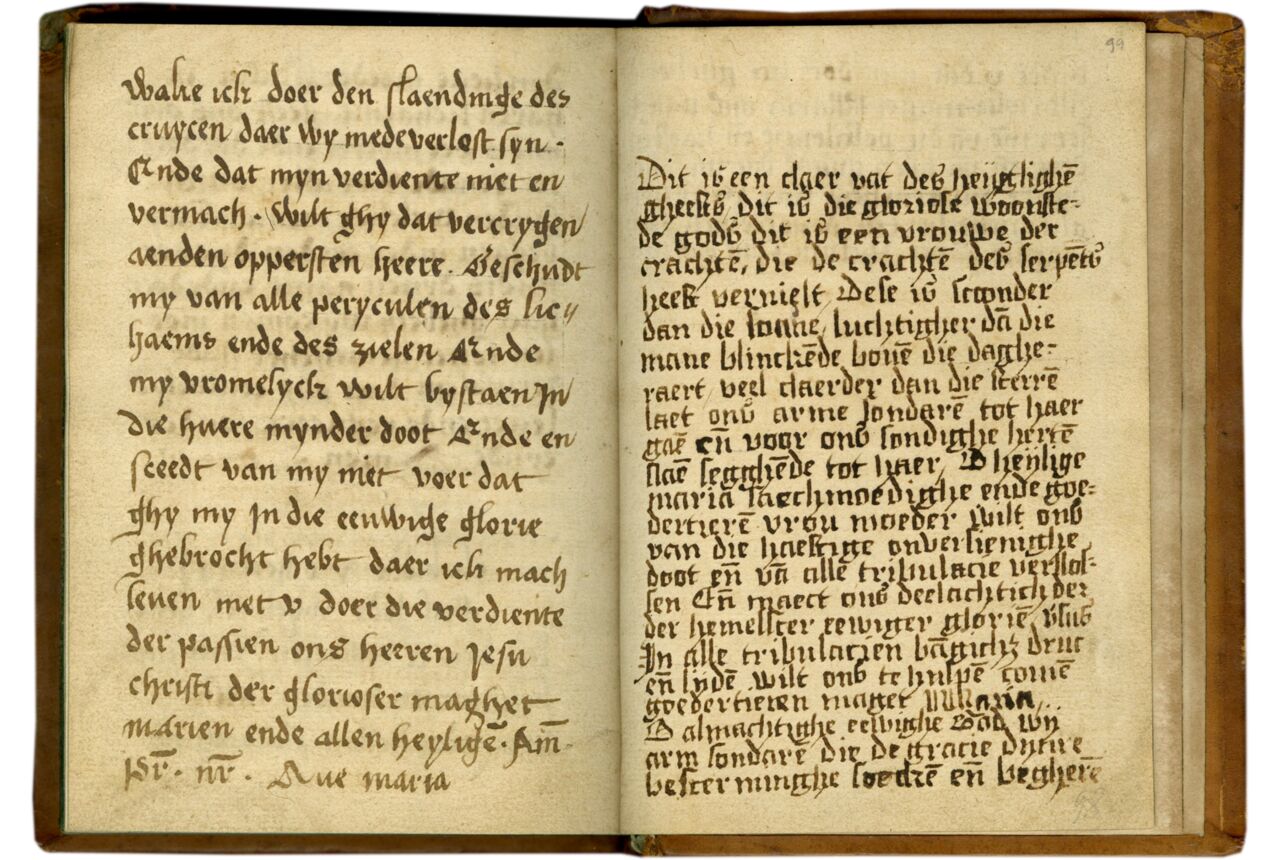 wake ick doer den staendinge des
cruycen daer wy mede verlost syn.
Ende dat myn verdiente niet en
vermach. Wilt ghy dat vercrygen
aenden oppersten heere. Beschudt
my van alle peryculen des lic
haems ende des zielen Ende
my vromelyck wilt bystaen In
die huere mynder doot Ende en
sceedt van my niet voer dat
ghy my In die eeuwige glorie
ghebrocht hebt daer ick mach
leven met v doer die verdiente
der passien ons heeren Jesu
christi der glorioser maghet
marien ende allen heylige᷈. Am᷈.
pr᷈. nr᷈. Aue maria
99
Dit is een claer vat des heijglighe᷈
gheests dit is die gloriose woonste-
de gods dit is een vrouwe der
crachte᷈, die de crachte᷈ des serpe᷈ts
heeft vernielt Dese is scoonder
dan die sonne, luchtigher da᷈ die
mane blincke᷈de boue᷈ die daghe-
raert, veel claerder dan die sterre᷈
laet ons arme sondare᷈ tot haer
gae᷈ en᷈ voor ons sondighe herte᷈
slae᷈ segghe᷈de tot haer, O heylige
maria saechmoedighe ende goe-
dertiere᷈ vrou moeder wilt ons
van die haestige onversienighe
doot en᷈ va᷈ alle᷈ tribulacie verlos-
sen En᷈ maect ons deelachtich der
der hemelscer eewiger glorie᷈
In alle tribulacien druc
en᷈ lyde᷈ wilt ons te hulpe᷈ come᷈
goedertieren maget Maria
O almachtighe eewighe God wy
arm sondare᷈ die de gracie dynre
bescerminghe soecke᷈ en᷈ beghere᷈
98